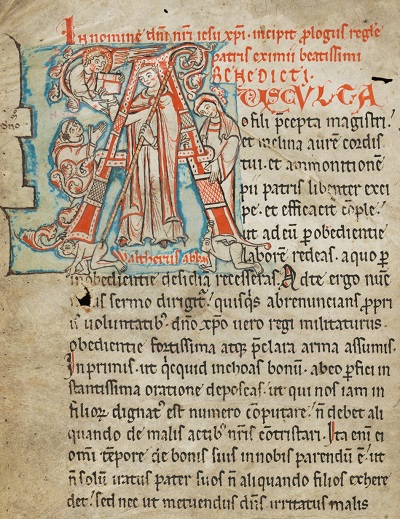 In nomine dnī nrī iesu xp̄i. incipit. plogus regłe
patris eximii beatissimi
BENEDICTI.
OSCULTA
o fili p̄cepta magistri.
et inclina aurē cordis
tui. et ammonitionē
pii patris libenter exci
pe. et efficacit cōple.
ut ad eū p obedientie
laborē redeas. a quo p
inobedientie desidia recesseras. Ad te ergo nūc
sermo dirigit. quisqs abrenuncians ppri
is voluntatib. dno xpo vero regi militaturus.
obedientie fortissima atq; p̄clara arma assumis.
In primis. ut qcquid inchoas bonū. abeo pfici in
stantissima oratione deposcas. ut qui nos iam in
filior dignat est numero cōputare. n̄ debet ali
quando de malis actib nris cōtristari. Ita enī ei
omī tēpore de bonis suis in nobis parendū ē. ut
n̄ solū iratus pater suos n̄ aliquando filios exhere
det. sed nec ut metuendus dn̄s irritatus malis
waltherus abbas